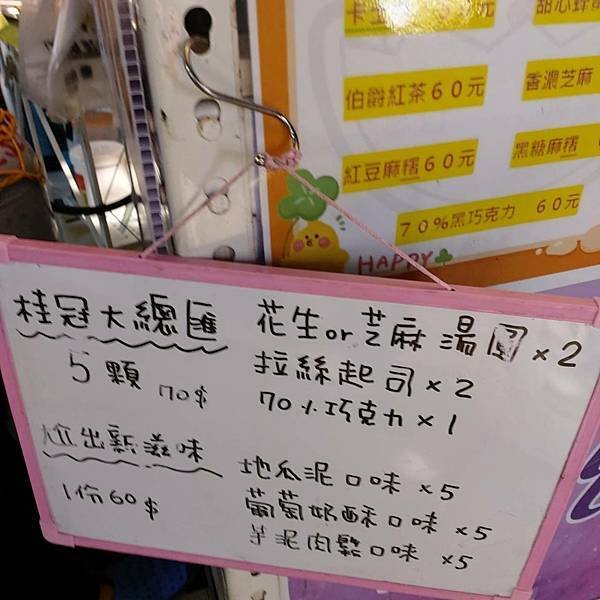 卡士
元
甜心蜂
伯爵紅茶60元
香濃芝麻
紅豆麻糬60元
黑糖麻糬
70%黑巧克力 60元
HAPPY
桂冠大總匯
5顆 70$
花生or芝麻湯圓×2
拉絲起司×2
70%巧克力×1
尬出新滋味
1份60$
地瓜泥口味×5
葡萄奶酥口味×5
芋泥肉鬆口味×5